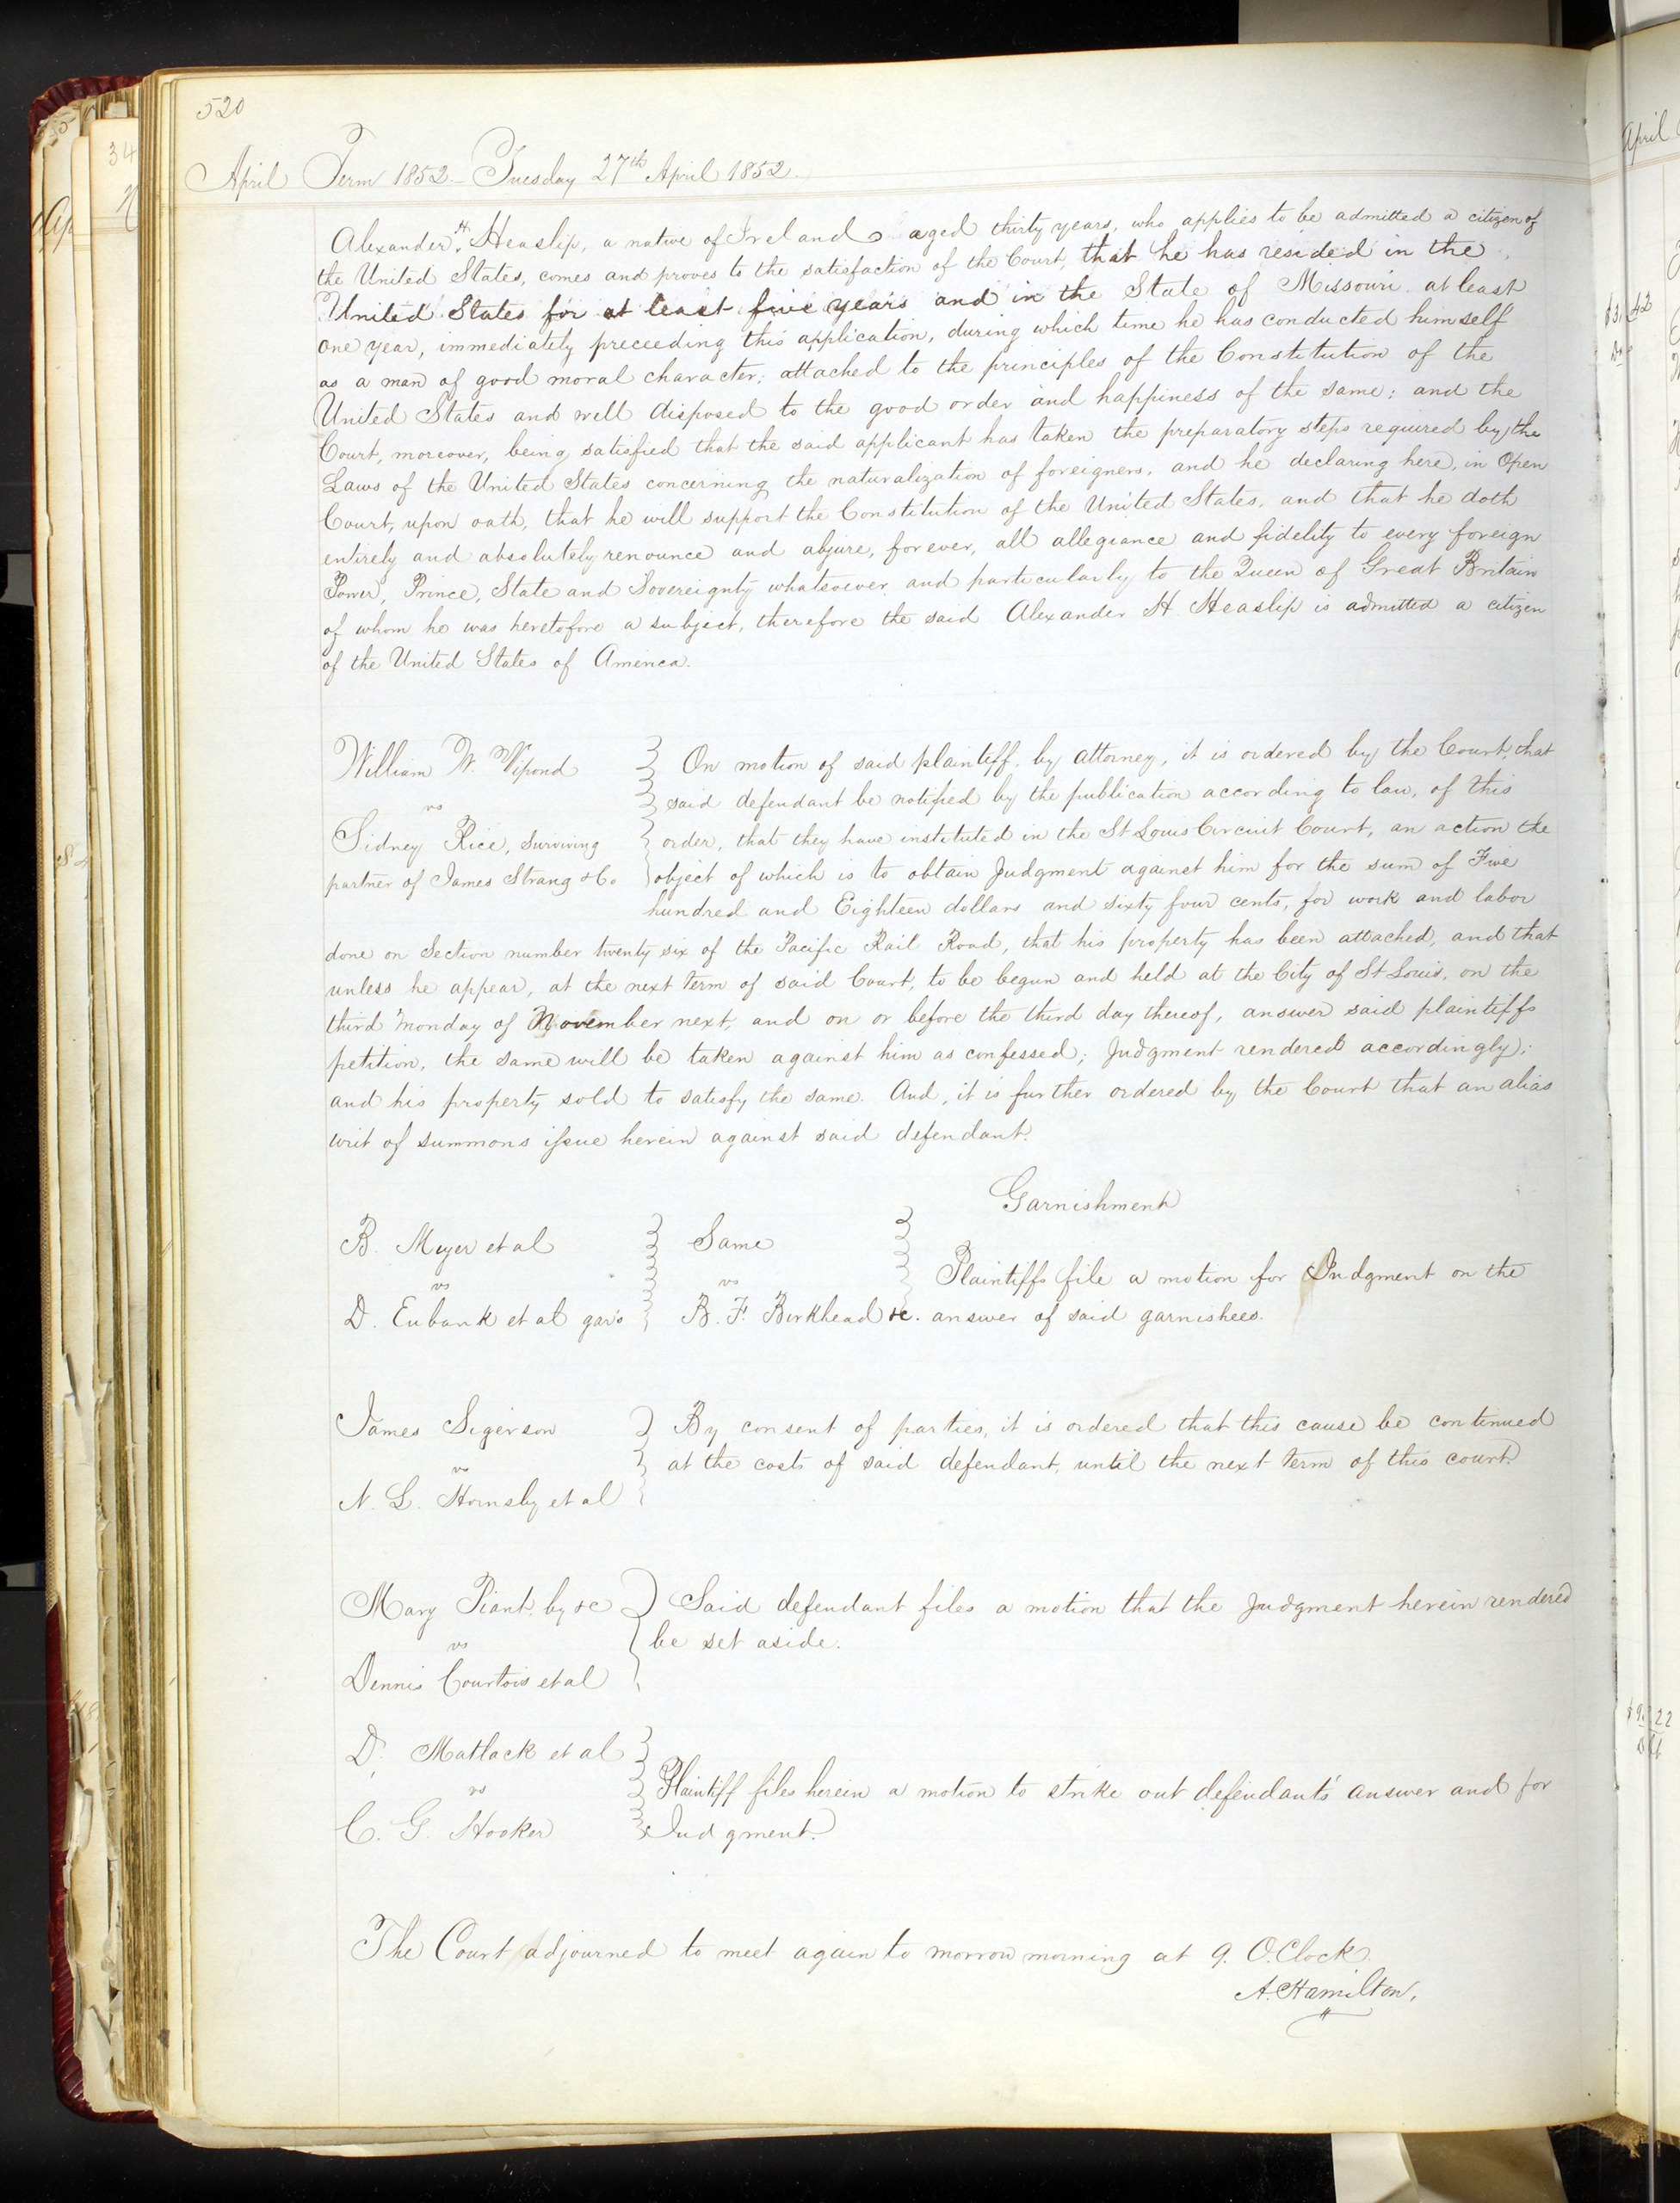 520
April Term 1852 - Tuesday 27th April 1852.
Alexander H. Heaslip, a native of Ireland aged thirty years, who applies to be admitted a citizen of
the United States, comes and proves to the satisfaction of the Court, that he has resided in the
United States for at least five years and in the State of Missouri at least
one year, immediately preceeding this application, during which time he has conducted himself
as a man of good moral character; attached to the principles of the Constitution of the
United States and well disposed to the good order and happiness of the same; and the
Court, moreover, being satisfied that the said applicant has taken the preparatory steps required by the
Laws of the United States concerning the naturalization of foreigners, and he declaring here, in Open
Court, upon oath, that he will support the Constitution of the United States, and that he doth
entirely and absolutely renounce and abjure, forever, all allegiance and fidelity to every foreign
Power, Prince, State and Sovereignty whatsoever and particularly to the Queen of Great Britain
of whom he was heretofore a subject, therefore the said Alexander H. Heaslip is admitted a citizen
of the United States of America.
William W. Vipond
vs
Sidney Rice, surviving
partner of James Strang & Co
On motion of said plaintiff, by attorney, it is ordered by the Court, that
said defendant be notified by the publication according to law, of this
order, that they have instituted in the St Louis Circuit Court, an action the
object of which is to obtain Judgment against him for the sum of Five
hundred and Eighteen dollars and sixty four cents, for work and labor
done on Section number twenty six of the Pacific Rail Road, that his property has been attached, and that
unless he appear, at the next term of said Court, to be begun and held at the City of St Louis, on the
third Monday of November next, and on or before the third day thereof, answer said plaintiffs
petition, the same will be taken against him as confessed; Judgment rendered accordingly;
and his property sold to satisfy the same. And, it is further ordered by the Court that an alias
writ of summons issue herein against said defendant.
Garnishment
B. Meyer et al
vs
D. Eubank et al gar's
Same
vs
B. F. Birkhead &c.
Plaintiffs file a motion for Judgment on the
answer of said garnishees.
James Sigerson
vs
N. L. Hornsby et al
By consent of parties, it is ordered that this cause be continued
at the costs of said defendant, until the next term of this court.
Mary Piant, by &c
vs
Dennis Courtois et al
Said defendant files a motion that the Judgment herein rendered
be set aside.
D. Matlack et al
vs
C. G. Hooker
Plaintiff files herein a motion to strike out defendant's answer and for
Judgment.
The Court adjourned to meet again to morrow morning at 9. O.Clock.
A. Hamilton.
April